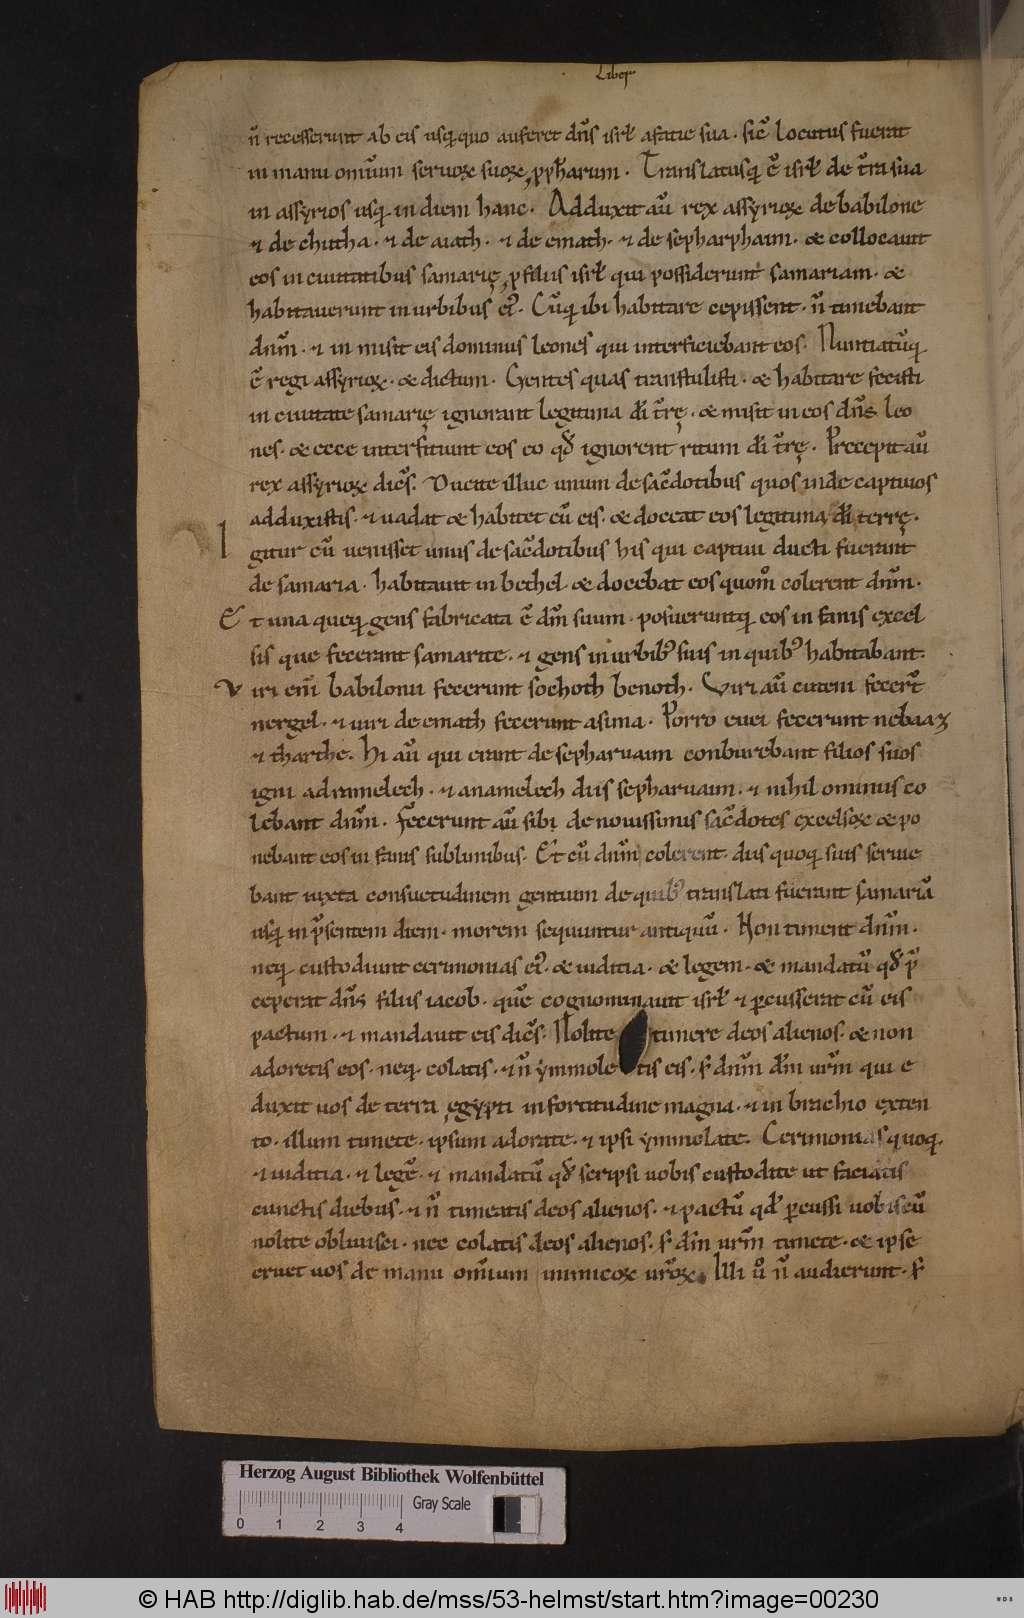 Liber
n̄ recesserunt ab eis usq; quo auferet dn̄s isrł a facie sua. sic̄ locutus fuerat
in manu om̄ium seruoꝝ suoꝝ ꝓpħarum. Translatusq; ē isrł de t̄ra sua
in assyrios usq; in diem hanc. Adduxit aū rex assyrioꝝ de babilone
⁊ de chutha. ⁊ de aiath. ⁊ de emath. ⁊ de sepharphaim. & collocauit
eos in ciuitatibus samarię, ꝓ filiis isrł qui possiderunt samariam. &
habitauerunt in urbibus ei᷒. Cūq; ibi habitare cepissent. n̄ timebant
dn̄m. ⁊ in misit eis dominus leones qui interficiebant eos. Nuntiatūq;
ē regi assyrioꝝ. & dictum. Gentes quas transtulisti. & habitare fecisti
in ciuitate samarię ignorant legitima dī t̄rę. & misit in eos dn̄s leo
nes. & ecce interficiunt eos eo qđ ignorent ritum dī t̄rę. Precepit aū
rex assyrioꝝ dic̄s. Ducite illuc unum de sac̄dotibus quos inde captiuos
adduxistis. ⁊ uadat & habitet cū eis. & doceat eos legitima dī terrę.
I gitur cū uenisset unus de sac̄dotibus his qui captiui ducti fuerant
de samaria. habitauit in bethel & docebat eos quom̊ colerent dn̄m.
E t una queq; gens fabricata ē dm̄ suum. posueruntq; eos in fanis excel
sis que fecerant samarite. ⁊ gens in urbib᷒ suis in quib᷒ habitabant.
V iri eni̅ babilonii fecerunt sochoth benoth. Viri aū cuteni fecer̄t
nergel. ⁊ uiri de emath fecerunt asima. Porro euei fecerunt nebaaz
⁊ tharthe. Hi aū qui erant de sepharuaim conburebant filios suos
igni adramelech. ⁊ anamelech diis sepharuaim. ⁊ nihil ominus co
lebant dn̄m. Fec̄erunt aū sibi de nouissimis sac̄dotes excelsoꝝ & po
nebant eos in fanis sublimibus. Et cū dn̄m colerent. diis quoq; suis seruie
bant iuxta consuetudinem gentium de quib᷒ translati fuerant samariā
usq; in p̄sentem diem. morem sequuntur antiquū. Non timent dn̄m.
neq; custodiunt cerimonias ei᷒. & iuditia. & legem. & mandatū qđ p̄
ceperat dn̄s filiis iacob. quē cognominauit isrł ⁊ ꝑcusserat cū eis
pactum. ⁊ mandauit eis dic̄s. Nolite timere deos alienos. & non
adoretis eos. neq; colatis. ⁊ n̄ ymmoletis eis. ſ; dn̄m dm̄ ur̄m qui e
duxit uos de terra ęgypti in fortitudine magna. ⁊ in brachio exten
to. illum timete. ipsum adorate. ⁊ ipsi ymmolate. Cerimonias quoq;
⁊ iuditia. ⁊ legē. ⁊ mandatū qđ scripsi uobis custodite ut faciatis
cunctis diebus. ⁊ n̄ timeatis deos alienos. ⁊ pactū qđ ꝑcussi uobiscū
nolite obliuisci. nec colatis deos alienos. ſ; dm̄ ur̄m timete. & ipse
eruet uos de manu om̄ium inimicoꝝ ur̄oꝝ. Illi ů n̄ audierunt. ſ;
Herzog August Bibliothek Wolfenbüttel
Gray Scale
0 1 2 3 4
© HAB http://diglib.hab.de/mss/53-helmst/start.htm?image=00230